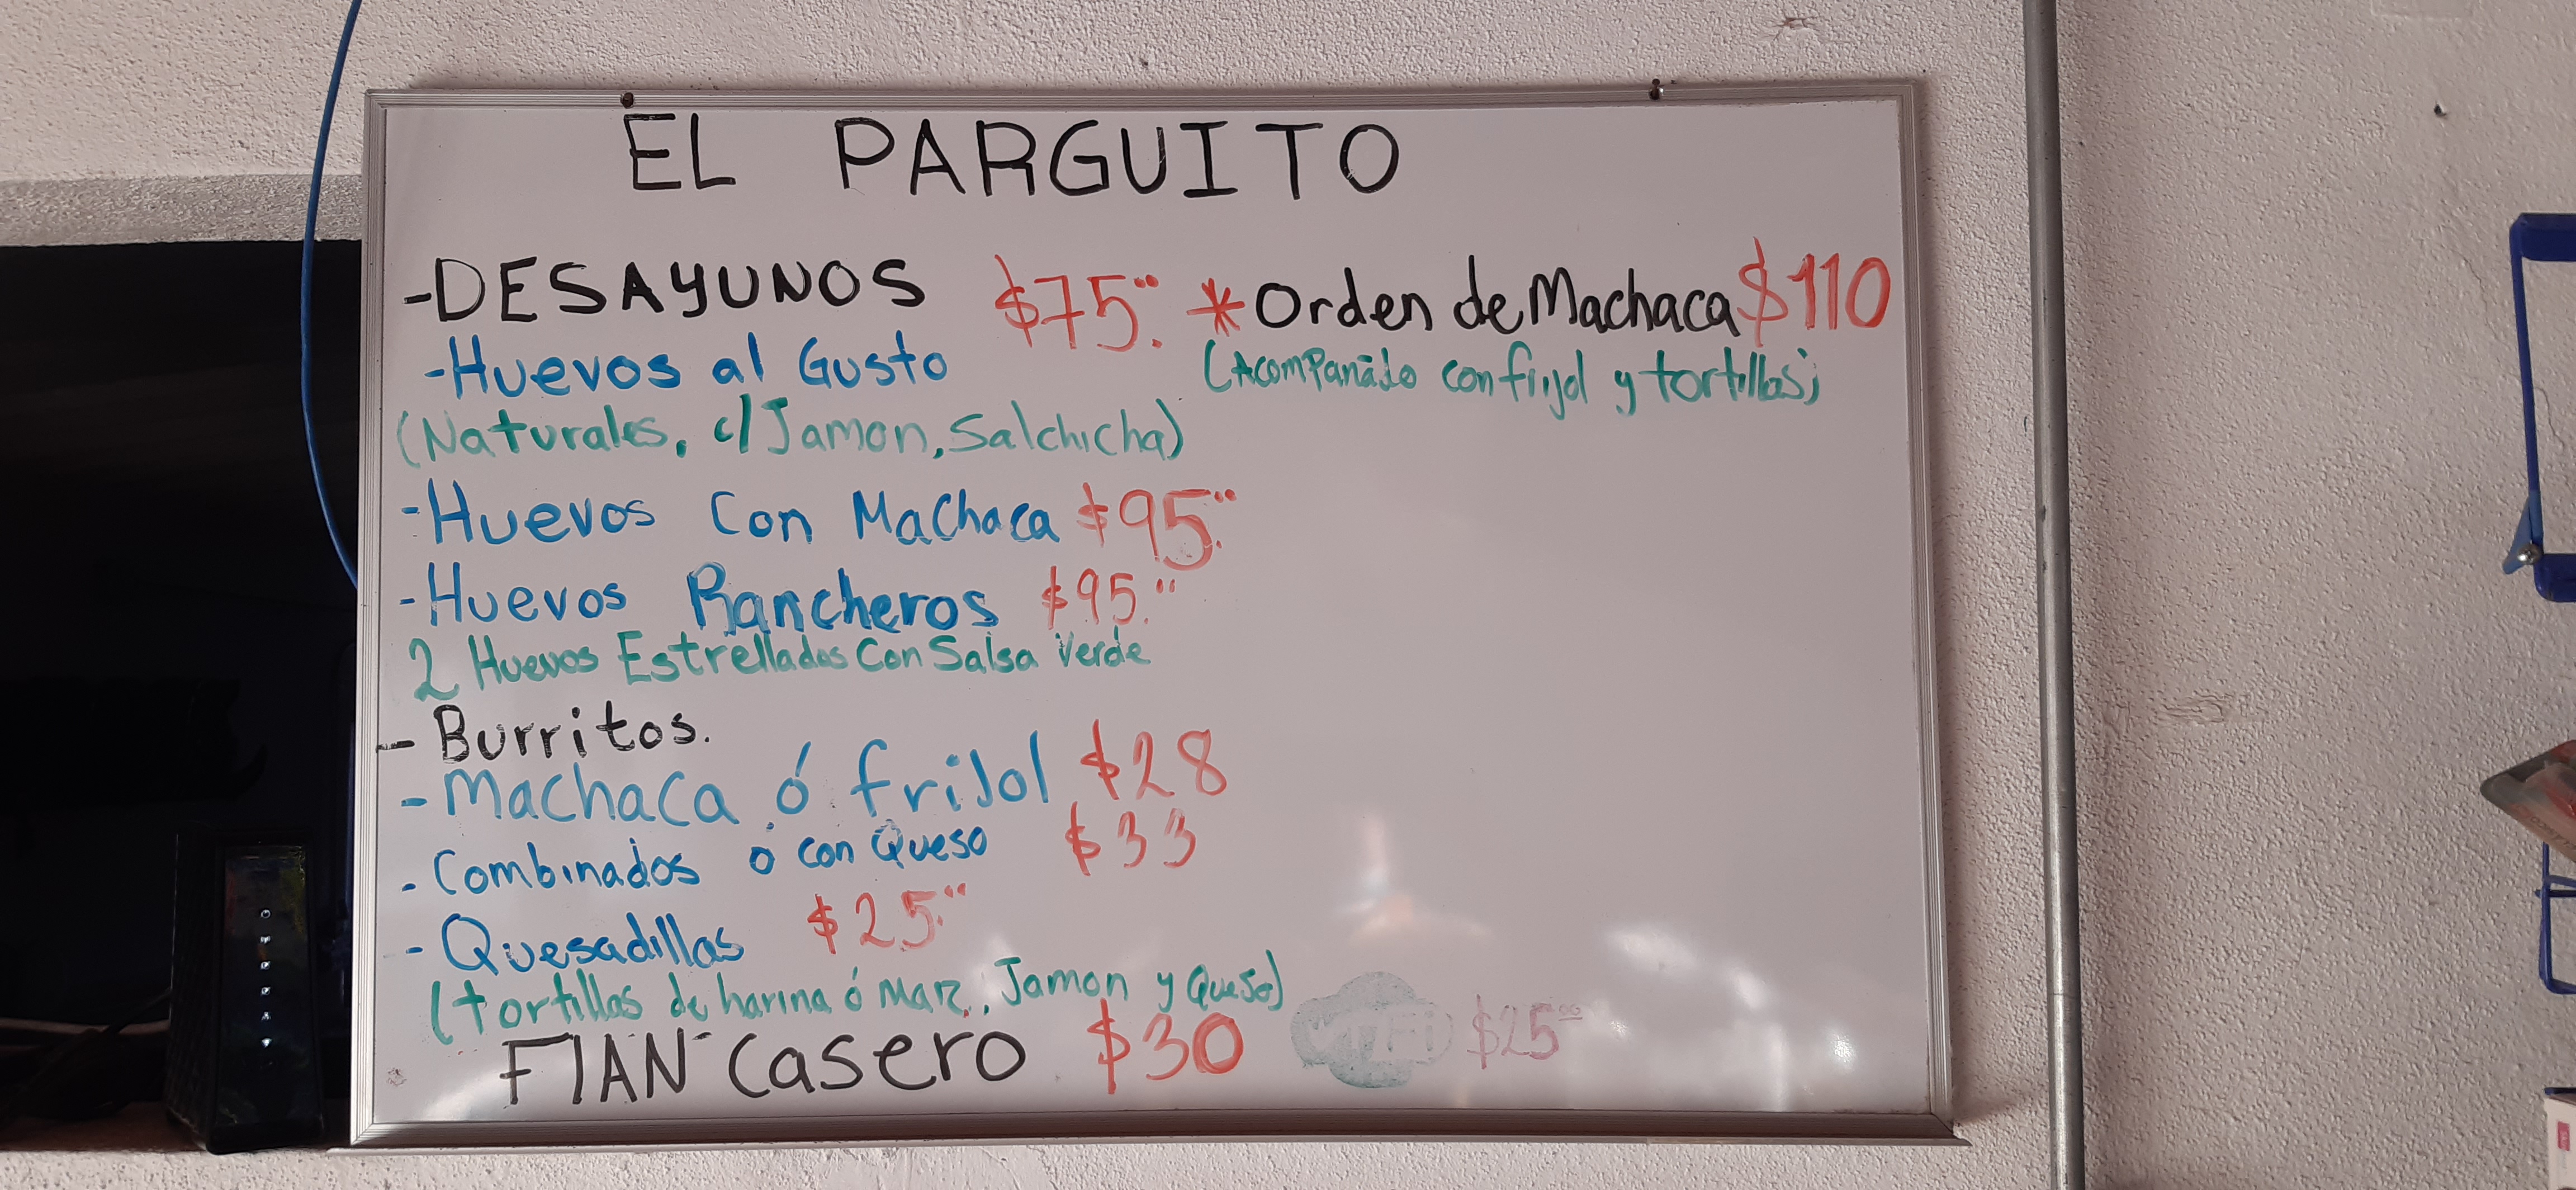 EL PARGUITO
-DESAYUNOS $75.00
-Huevos al Gusto
(Naturales, c/Jamon, Salchicha)
-Huevos Con Machaca $95.00
-Huevos Rancheros $95.00
2 Huevos Estrellados Con Salsa Verde
-Burritos.
-Machaca ó friJol $28
-Combinados ó con Queso $33
-Quesadillas $25.00
(tortillas de harina ó Maiz, Jamon y Queso)
FlAN Casero $30
WIFI $25.00
*Orden de Machaca $110
(Acompañado con frijol y tortillas)